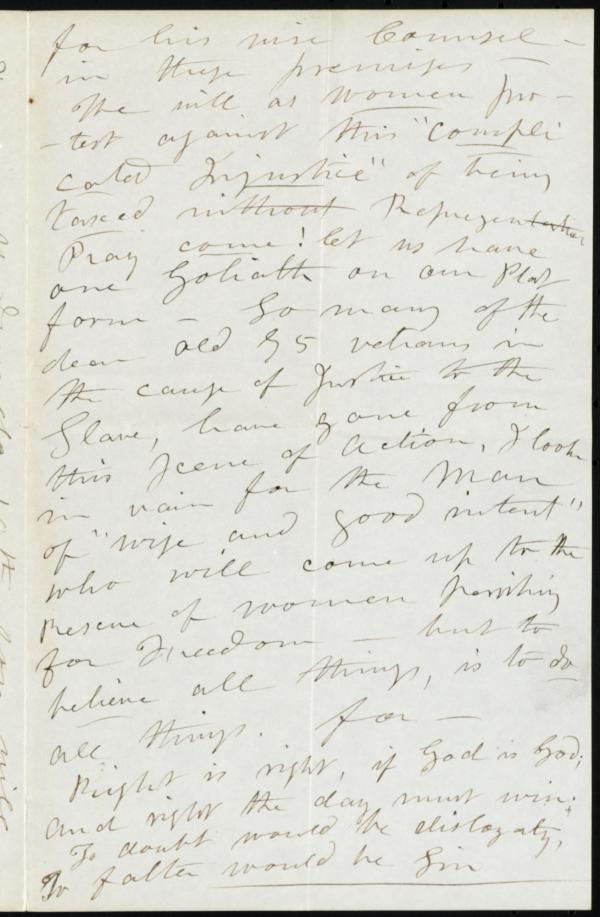 for his wise Counsel -
in these premises -
The will as women pro -
- test against this "compli
cated Injustice" of being
taxed without Representation
Pray come! let us have
one Goliath on our Plat
form - So many of the
dear old 35 vetrans in
the cause of Justice to the
Slave, have gone from
this Scene of action, I look
in vain for the Man
of "wise and good intent"
who will come up to the
rescue of women perishing
for Freedom - but to
believe all things, is to do
all things. for -
Right is right, if God is God;
and right the day must win;
To doubt would be disloyalty,
To falter would be Sin